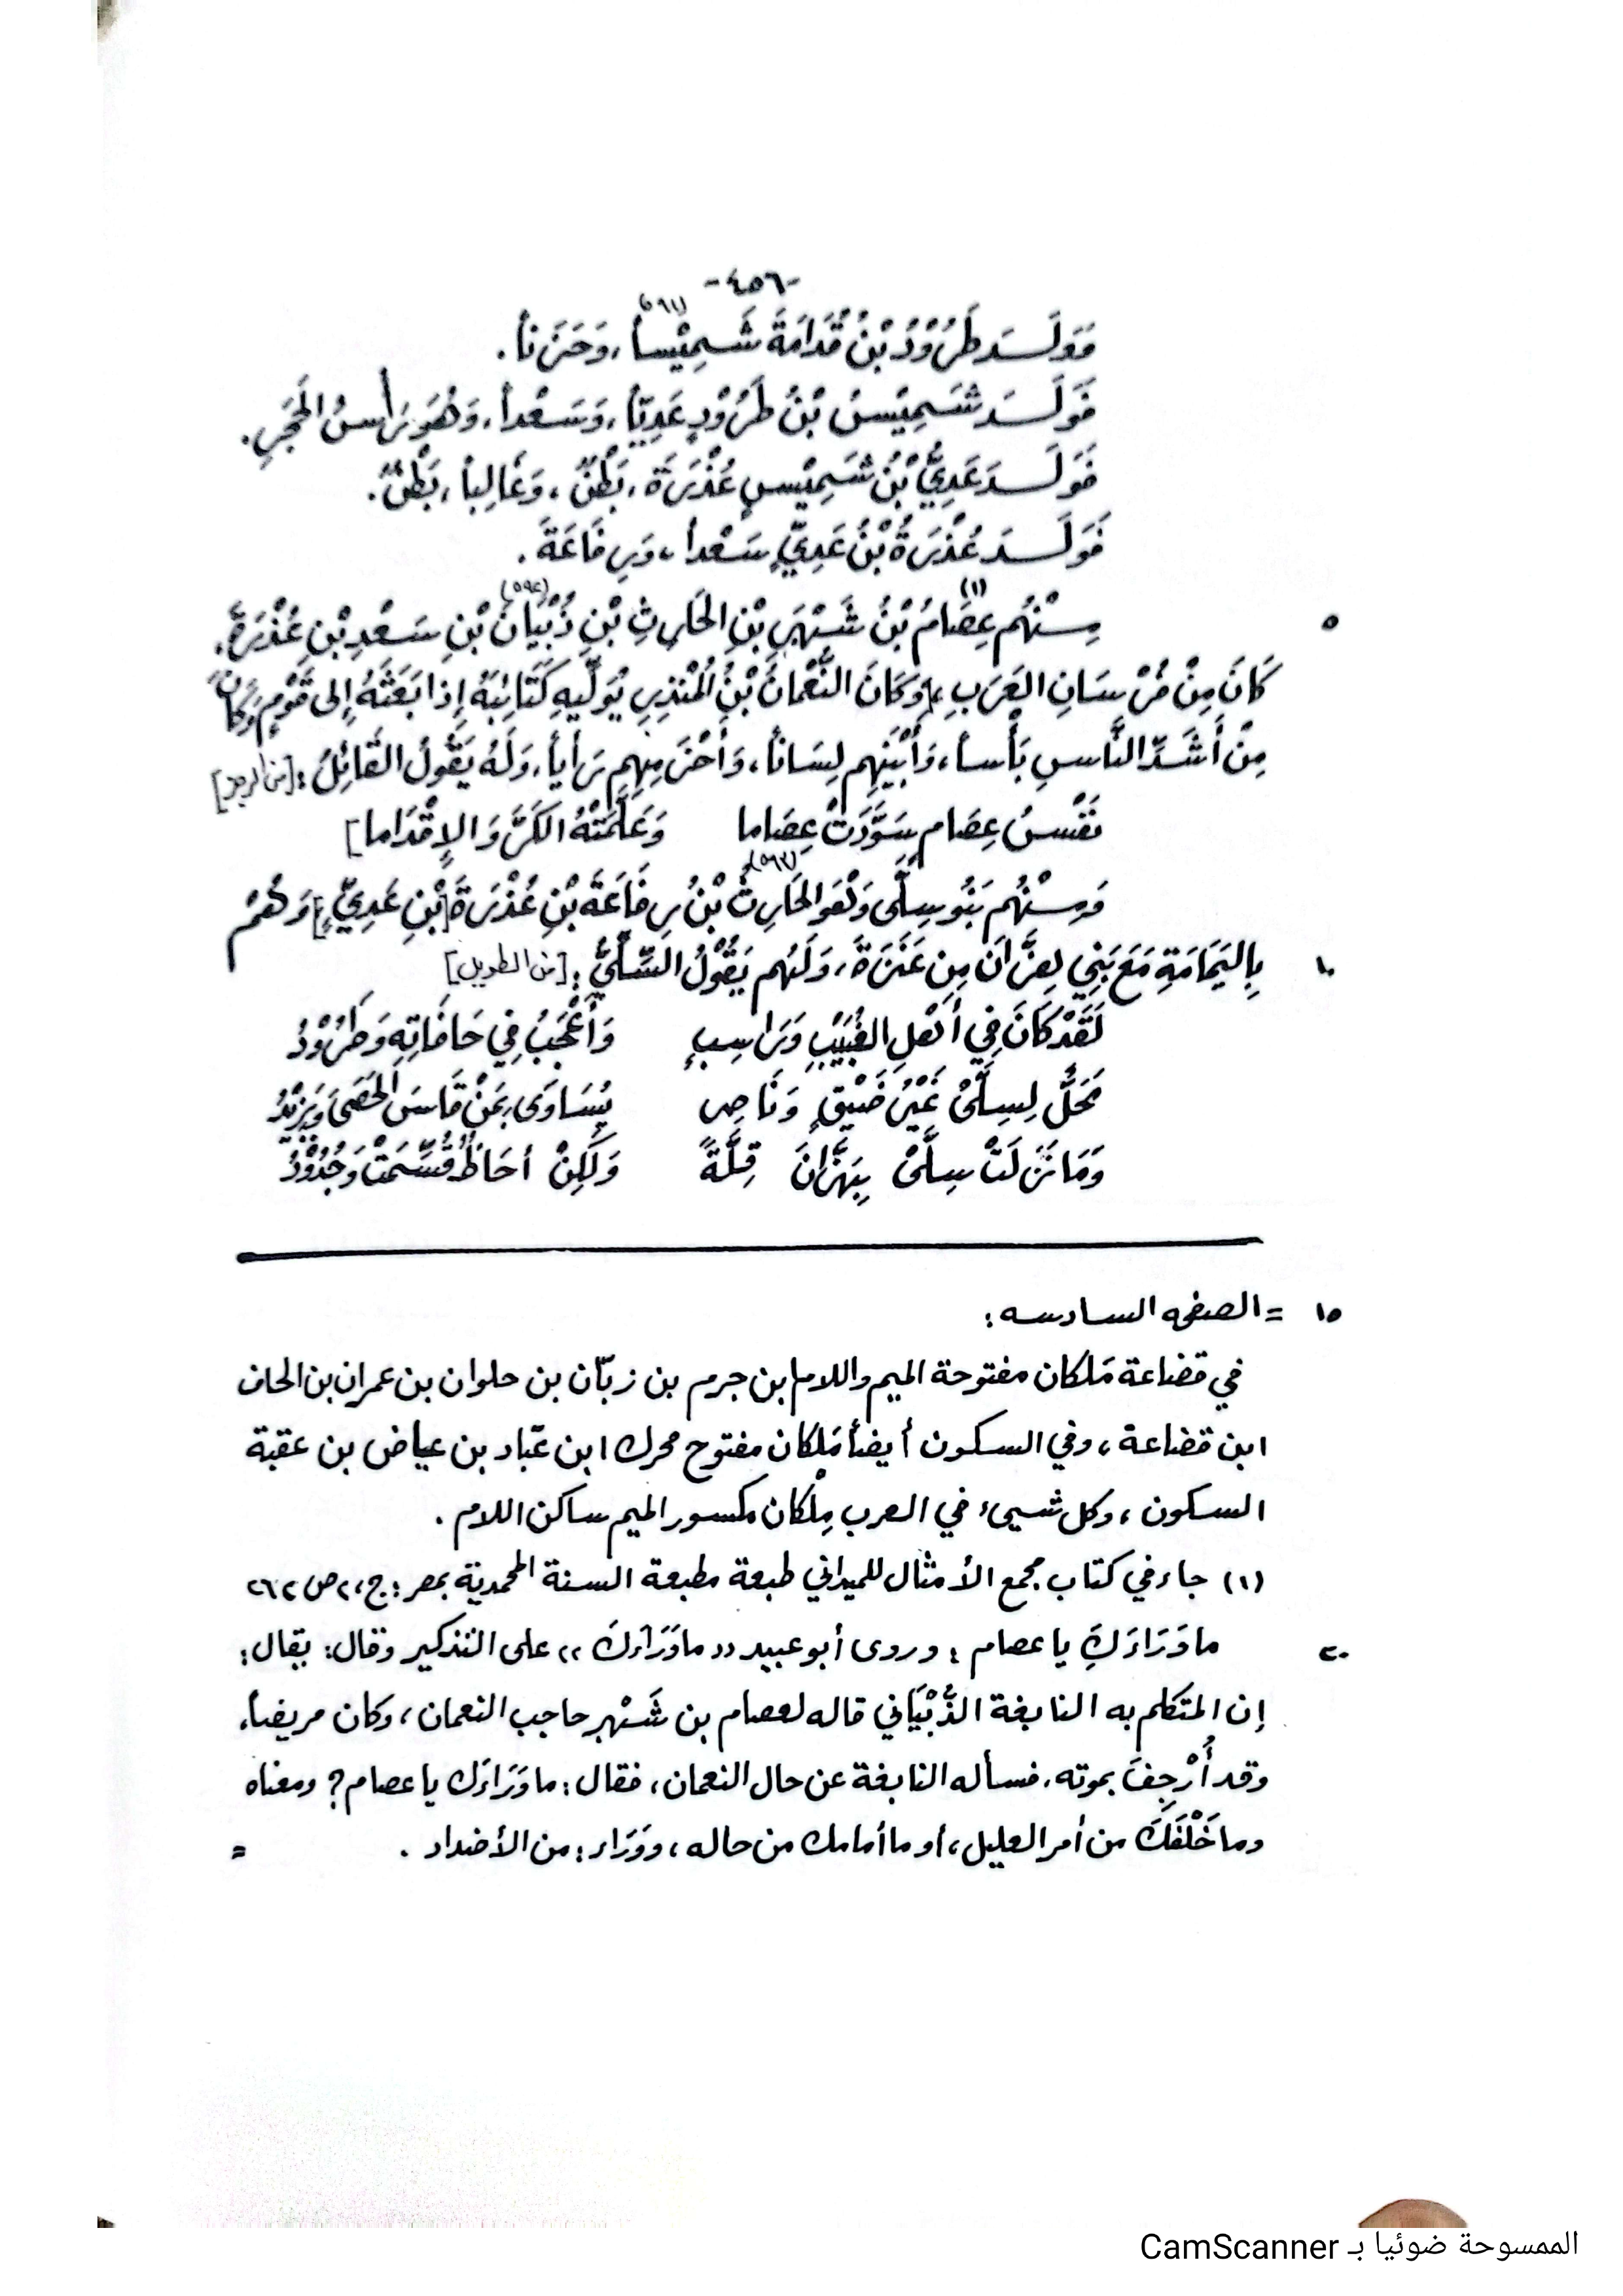 -٤٥٦-
فَوَلَدَ طَرُوْدُ بْنُ قُدَامَةَ شَمِيْساً(٥٩١)، وَحَزَناً.
فَوَلَدَ شَمِيْسُ بْنُ طَرُوْدٍ عَدِيّاً، وَسَعْداً، وَهُوَ رَأْسُ الحَجَرِ.
فَوَلَدَ عَدِيُّ بْنُ شَمِيْسٍ عُذْرَةَ، بَطْنٌ، وَغَالِباً، بَطْنٌ.
فَوَلَدَ عُذْرَةُ بْنُ عَدِيٍّ سَعْداً، وَرِفَاعَةَ.
٥ مِنْهُم عِصَامُ(١) بْنُ شَهْبَرِ بْنِ الحَارِثِ بْنِ ذُبْيَانَ(٥٩٢) بْنِ سَعْدِ بْنِ عُذْرَةَ،
كَانَ مِنْ فُرْسَانِ العَرَبِ، [وَكَانَ النُّعْمَانُ بْنُ المُنْذِرِ يُوَلِّيهِ كَتَائِبَهُ إِذا بَعَثَهُ إِلى قَوْمٍ وَكَانَ
مِنْ أَشَدِّ النَّاسِ بَأْساً، وَأَبْيَنِهِم لِسَاناً، وَأَحْزَمِهِم رَأْياً، وَلَهُ يَقُولُ القَائِلُ: [من الرجز]
نَفْسُ عِصَامٍ سَوَّدَتْ عِصَاما وَعَلَّمَتْهُ الكَرَّ وَالإِقْدَاما]
وَمِنْهُم بَنُو سِلَّى وَهُوَ الحَارِثُ(٥٩٣) بْنُ رِفَاعَةَ بْنِ عُذْرَةَ [بْنِ عَدِيٍّ] وَهُمْ
١٠ بِاليَمَامَةِ مَعَ بَنِي هِزَّانَ مِن عَنَزَةَ، وَلَهُم يَقُوْلُ السِّلِّيُّ: [من الطويل]
لَقَدْ كَانَ فِي أَهْلِ الغُبَيْبِ وَرَاسِبٍ وَأَعْجَبُ فِي حَافَاتِهِ وَطَرُوْدُ
مَحَلُّ لِسِلَّىْ غَيْرُ ضَيْقٍ وَنَاصِر يُسَاوَى بِمَنْ قَاسَ الحَصَى وَيَزِيْدُ
وَمَا نَزَلَتْ سِلَّىْ بِهَزَّانَ قِلَّةً وَلَكِنْ أحَاظٍ قُسِّمَتْ وَجُدُوْدُ
١٥ = الصفحه السادسه:
في قضاعة مَلكان مفتوحة الميم واللام ابن جرم بن زبّان بن حلوان بن عمران بن الحاف
ابن قضاعة، وفي السكون أيضاً مَلكان مفتوح محرك ابن عبّاد بن عياض بن عقبة
السكون، وكل شيىء في العرب مِلْكان مكسور الميم ساكن اللام.
(١) جاء في كتاب مجمع الأمثال للميداني طبعة مطبعة السنة المحمدية بمصر: ج،٢ ص ٢٦٢
٢٠ ما وَرَاءَكِ يا عصام: وروى أبو عبيد «ما وَرَاءَكَ» على التذكير وقال: يقال:
إن المتكلم به النابغة الذُّبْيَاني قاله لعصام بن شَهْبر حاجب النعمان، وكان مريضاً،
وقد أُرْجِفَ بموته، فسأله النابغة عن حال النعمان، فقال: ما وَرَاءَك يا عصام؟ ومعناه
وما خَلْفَكَ من أمر العليل، أو ما أمامك من حاله، ووَرَاء: من الأضداد. =
الممسوحة ضوئيا بـ CamScanner